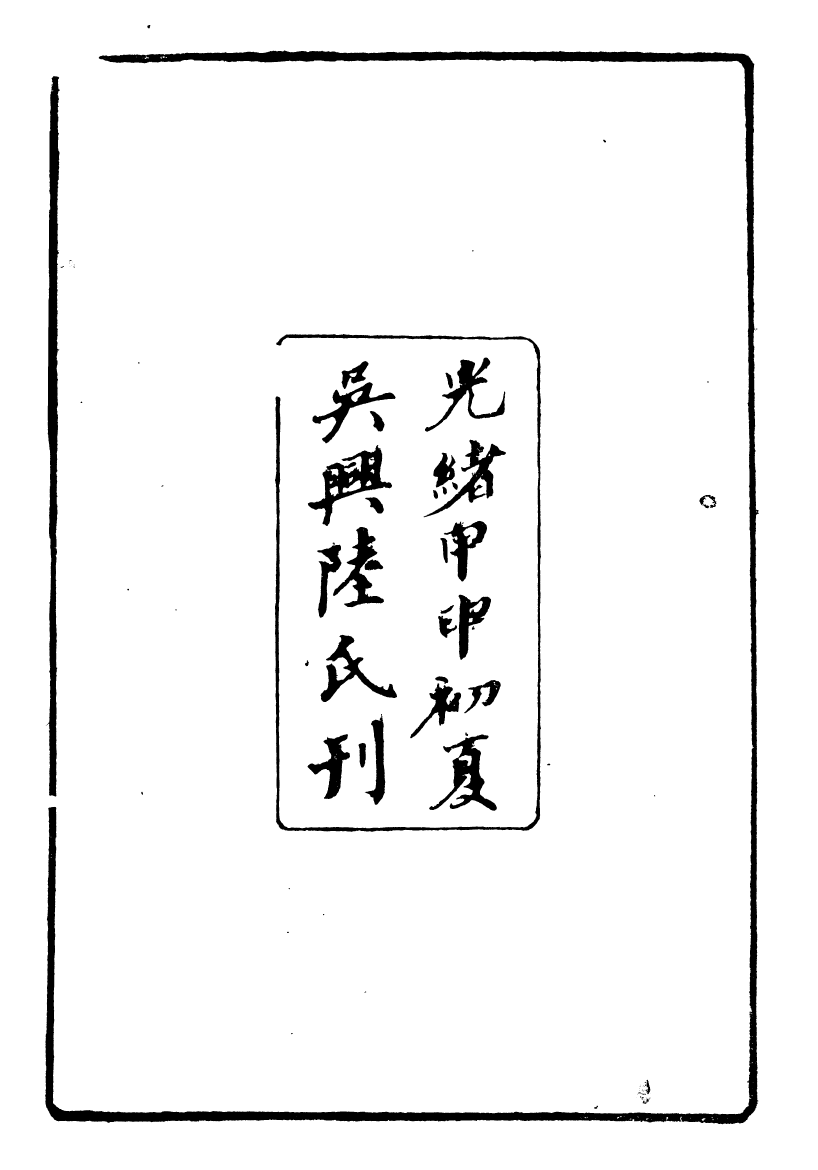 光緒甲申初夏
吳興陸氏刊